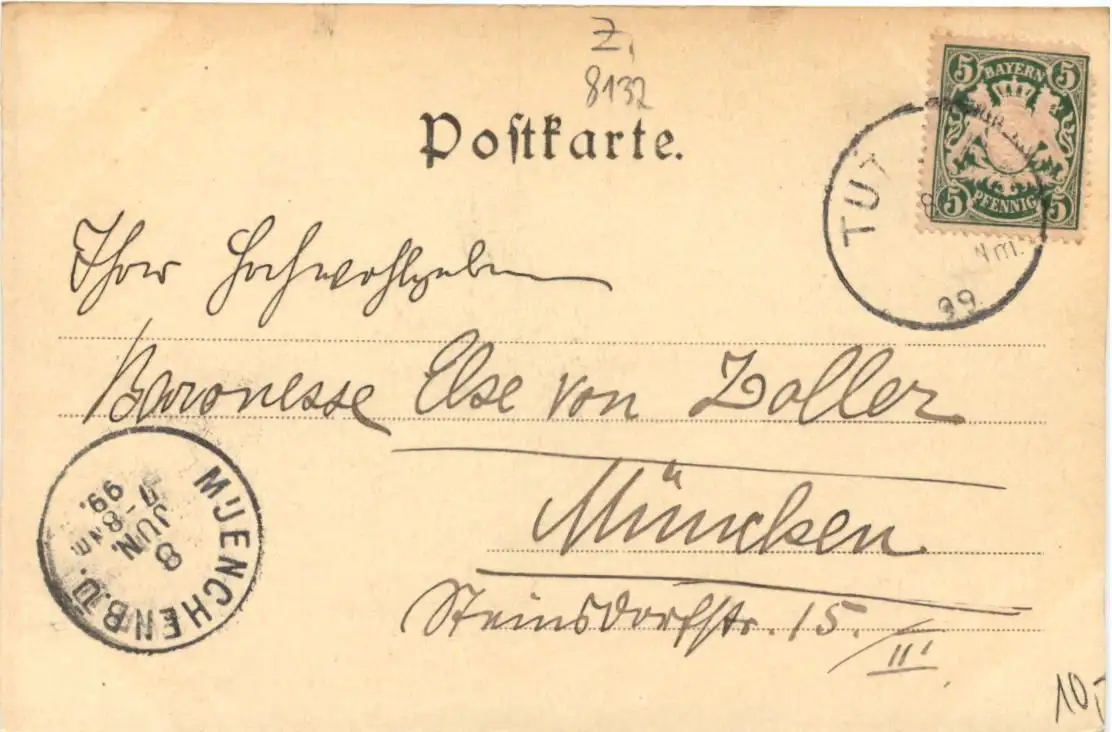 Z,
8132
Postkarte.
5 BAYERN 5
5 PFENNIG 5
TUT
8
Nm.
99
Ihrer Hochwohlgeboren
Baronesse Else von Zoller
München
Steinsdorfstr. 15./III
MUENCHEN B.D.
8
JUN.
7-8 Nm.
99.
10,-